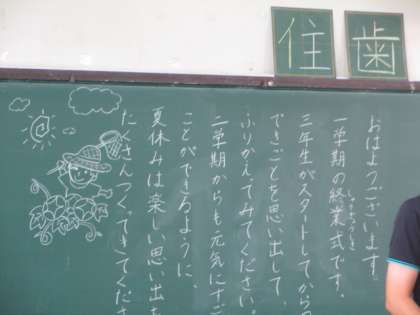 住
歯
おはようございます。
一学期の終業式です。
しゅうぎょうしき
三年生がスタートしてからの
できごとを思い出して、
ふりかえてみてください。
二学期からも元気にすご
ことができるように、
夏休みは楽しい思い出を
たくさんつくってきてくださ